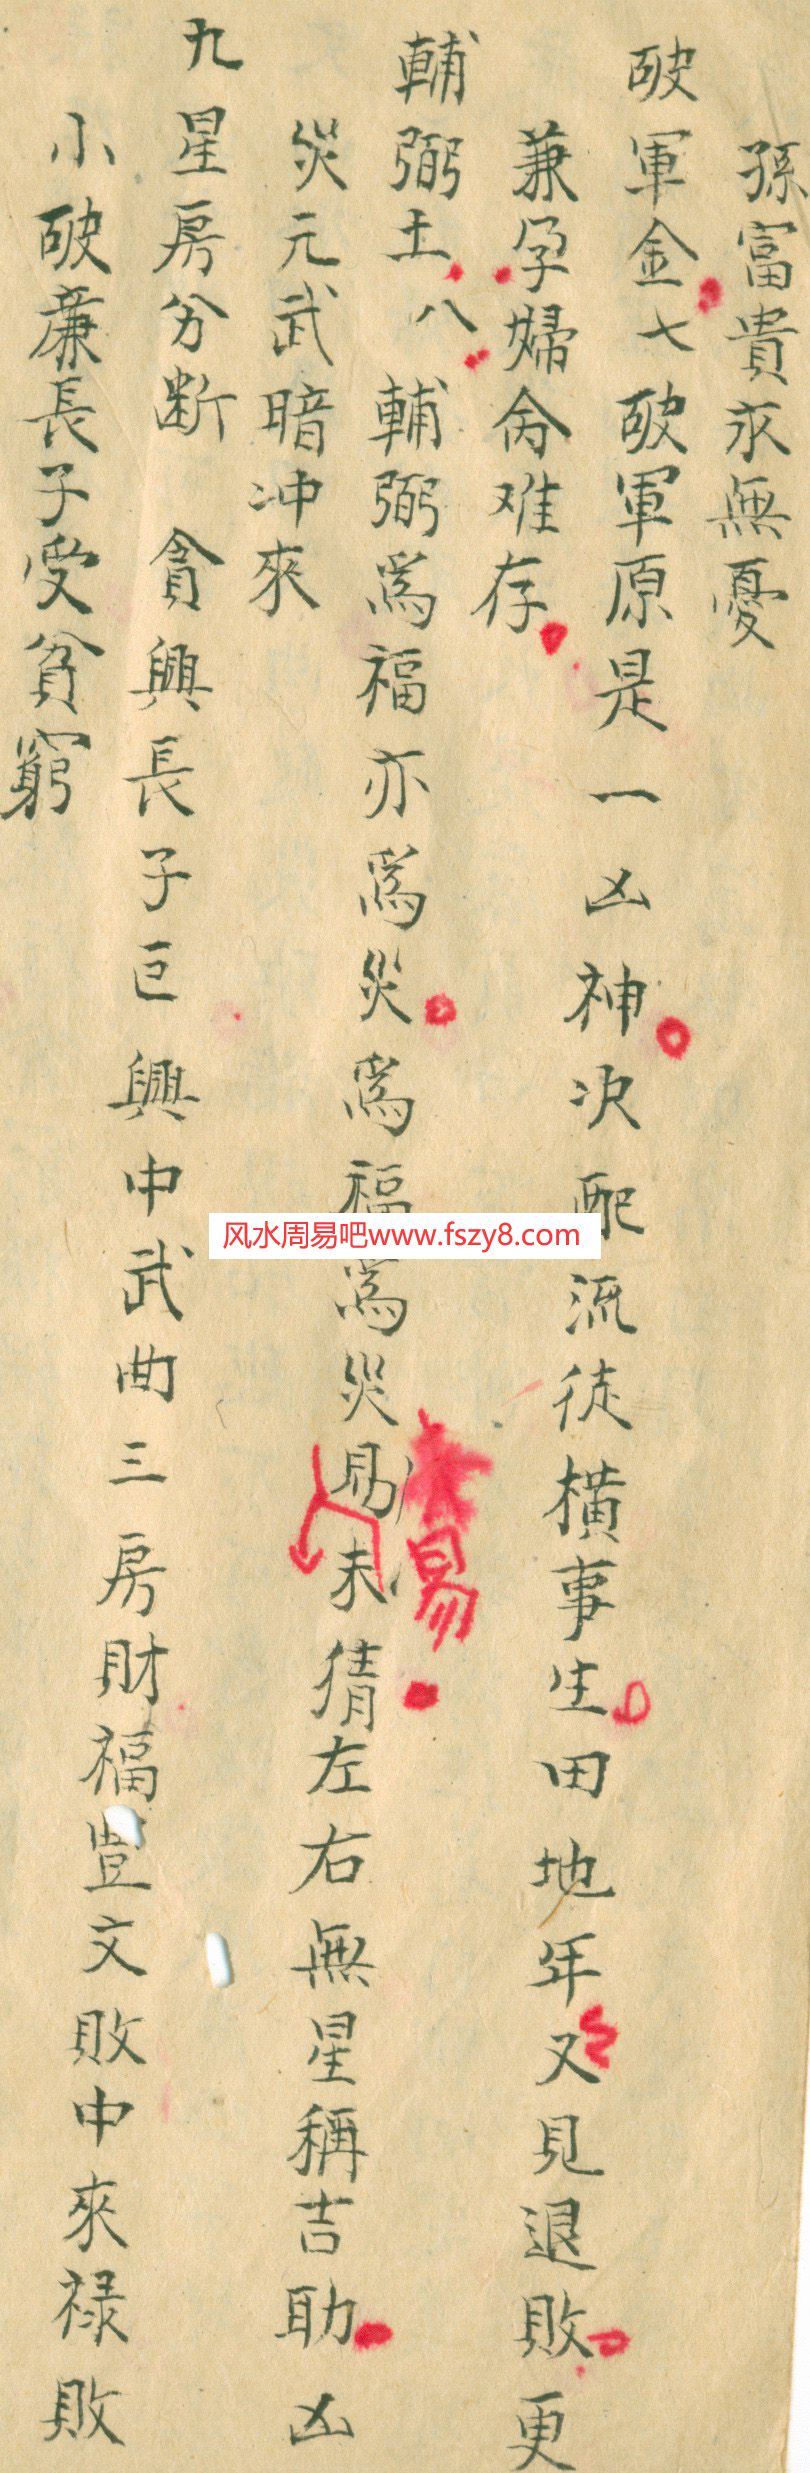 孫富貴永無憂
破軍金七破軍原是一凶神次配流徒橫事生田地年又見退敗更
兼孕婦命难存
輔弼土八輔弼爲福亦爲災爲福爲災易未猜左右無星稱吉助凶
災元武暗冲來
九星房分断 貪興長子巨興中武曲三房財福豈文敗中來禄敗
小破廉長子受貧窮
易
风水周易吧www.fszy8.com